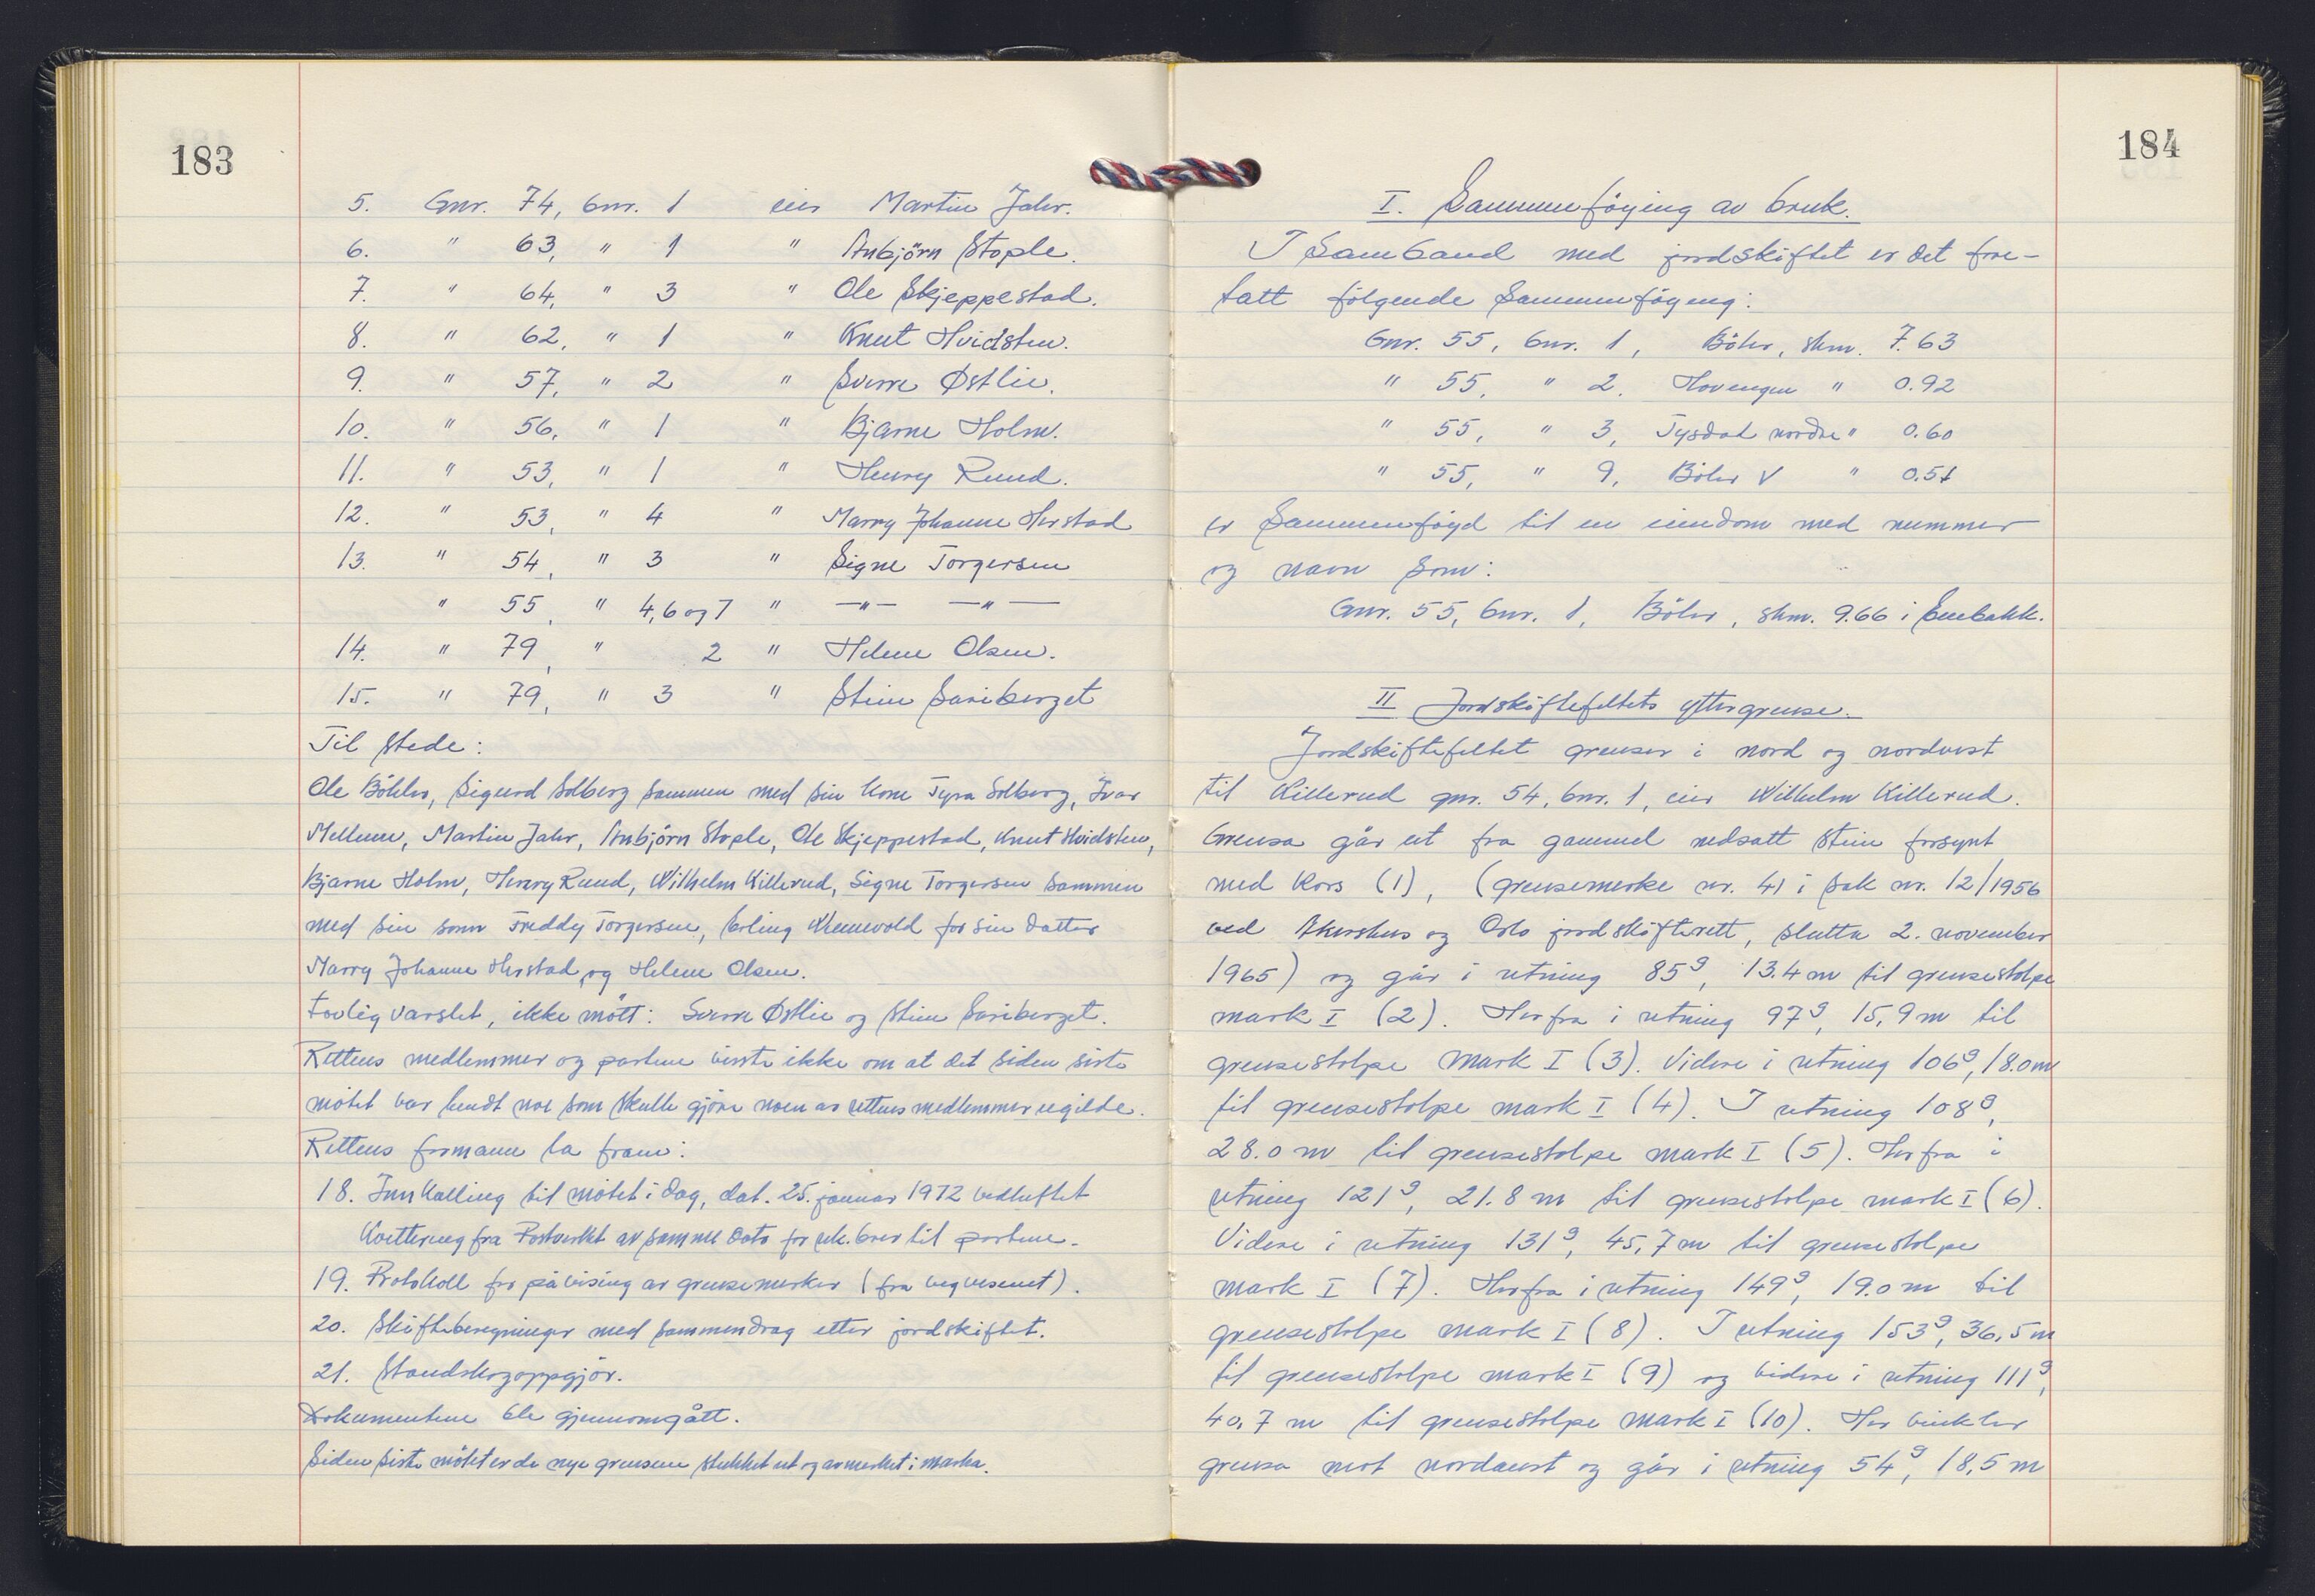 183
5. Gnr. 74, bnr. 1 eier Martin Jahr.
6. " 63, " 1 " Anbjörn Stople.
7. " 64, " 3 " Ole Skjeppestad.
8. " 62, " 1 " Knut Hvidsten.
9. " 57, " 2 " Sverre Østlie.
10. " 56, " 1 " Bjarne Holm.
11. " 53, " 1 " Henry Ruud.
12. " 53, " 4 " Marry Johanne Herstad
13. " 54, " 3 " Signe Torgersen
" 55, " 4,6 og 7 " —"— —"—
14. " 79, " 2 " Helene Olsen.
15. " 79, " 3 " Stein Sariberget
Til stede:
Ole Böhler, Sigurd Solberg sammen med sin kone Tyra Solberg, Ivar
Mellum, Martin Jahr, Anbjörn Stople, Ole Skjeppestad, Knut Hvidsten,
Bjarne Holm, Henry Ruud, Wilhelm Killerud, Signe Torgersen sammen
med sin sönn Freddy Torgersen, Erling Wennevold for sin datter
Marry Johanne Herstad og Helene Olsen.
Lovlig varslet, ikke mött: Sverre Østlie og Stein Sariberget.
Rettens medlemmer og partene visste ikke om at det siden siste
mötet var hendt noe som skulle gjöre noen av rettens medlemmer ugilde.
Rettens formann la fram:
18. Innkalling til mötet i dag, dat. 25. januar 1972 vedheftet
kvittering fra Postverket av samme dato for rek. brev til partene.
19. Protokoll for påvising av grensemerker (fra vegvesenet).
20. Skifteberegninger med sammendrag etter jordskiftet.
21. Standskogoppgjör.
Dokumentene ble gjennomgått.
Siden siste mötet er de nye grensene stukket ut og avmerket i marka.
184
I. Sammenföying av bruk.
I samband med jordskiftet er det fore-
tatt fölgende sammenföying:
Gnr. 55, bnr. 1, Böler, skm. 7.63
" 55, " 2, Hovengen " 0.92
" 55, " 3, Tysdal nordre " 0.60
" 55, " 9, Böler V " 0.51
er sammenföyd til en eiendom med nummer
og navn som:
Gnr. 55, bnr. 1, Böler, skm. 9.66 i Enebakk.
II Jordskiftefeltets yttergrense.
Jordskiftefeltet grenser i nord og nordvest
til Killerud gnr. 54, bnr. 1, eier Wilhelm Killerud.
Grensa går ut fra gammel nedsatt stein forsynt
med kors (1), (grensemerke nr. 41 i sak nr. 12/1956
ved Akershus og Oslo jordskifterett, slutta 2. november
1965) og går i retning 85ᵍ, 13.4 m til grensestolpe
mark I (2). Herfra i retning 97ᵍ, 15,9 m til
grensestolpe mark I (3). Videre i retning 106ᵍ, 18.0 m
til grensestolpe mark I (4). I retning 108ᵍ,
28.0 m til grensestolpe mark I (5). Herfra i
retning 121ᵍ, 21.8 m til grensestolpe mark I (6).
Videre i retning 131ᵍ, 45,7 m til grensestolpe
mark I (7). Herfra i retning 149ᵍ, 19.0 m til
grensestolpe mark I (8). I retning 153ᵍ, 36,5 m
til grensestolpe mark I (9) og videre i retning 111ᵍ,
40,7 m til grensestolpe mark I (10). Her vinkler
grensa mot nordaust og går i retning 54ᵍ, 18,5 m